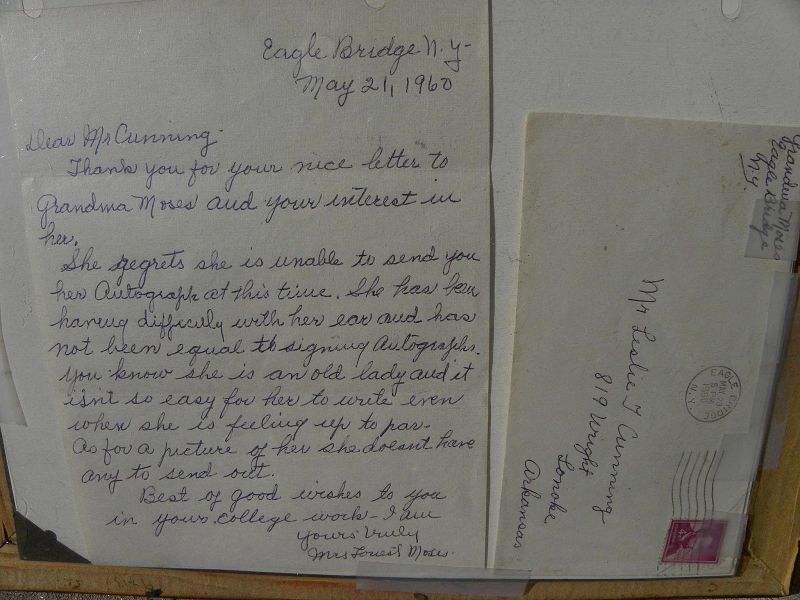 Eagle Bridge N.Y-
May 21, 1960
Dear Mr Cunning-
Thank you for your nice letter to
Grandma Moses and your interest in
her.
She regrets she is unable to send you
her Autograph at this time. She has been
having difficulty with her ear and has
not been equal to signing Autographs.
You know she is an old lady and it
isn't so easy for her to write even
when she is feeling up to par-
As for a picture of her she doesn't have
any to send out.
Best of good wishes to you
in your college work - I am
Yours truly
Mrs Forrest Moses.
Grandma Moses
Eagle Bridge
N.Y
Mr Leslie T Cunning
819 Wright
Lonoke
Arkansas
EAGLE BRIDGE
MAY
PM
1960
N.Y.
4¢